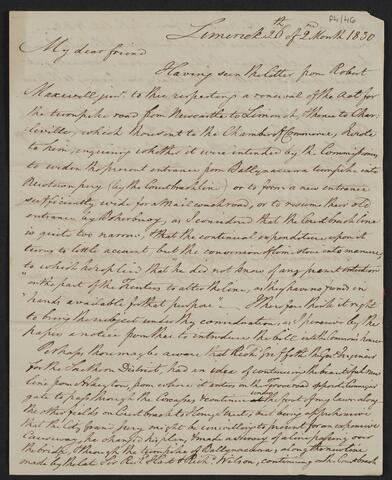 P4/46
Limerick 20th of 2nd Month 1830
My dear friend
Having seen the letter from Robert
Maxwell junr. to thee respecting a renewal of the Act for
the turnpike road from Newcastle to Limerick, & thence to Char-
-leville, which thou sent to the Chamber of Commerce, I wrote
to him, enquiring whether it were intended by the Commissioners
to widen the present entrance from Ballynaclura turnpike into
Newtownpery (by the Courtbrack line) or to form a new entrance
sufficiently wide for a Mail coach road, or to resume their old
entrance by Boherbuoy, as I considered that the Courtbrack line
is quite too narrow, & that the continual expenditure upon it
turns to little account, but the conversion of limestone into manure,
to which he replied that "he did not know of any present intention
"on the part of the Trustees to alter the line, as they have no funds in
"hands available for that purpose" — I therefore think it right
to bring the subject under thy consideration, as I perceive by the
papers a notice from thee to introduce the bill into the Commons house
Perhaps thou may be aware that Richd. Griffith the Govt. Engineer
for the Southern District, had an idea of continuing the beautiful new
line from Abbeyfeale, from where it enters on the
gate to pass through the & continue the front of my lawn along
the other fields on Courtbrack to Henry street, but being apprehensive
that the City Grand Jury might be unwilling to present for an expensive
Causeway, he changed his plan, & made a survey of a line passing over
the bridge, & through the turnpike of Ballynaclura, along the new line
made by the late Sir Richd. Hart & Richd. Wilson, continuing on the Courtbrack